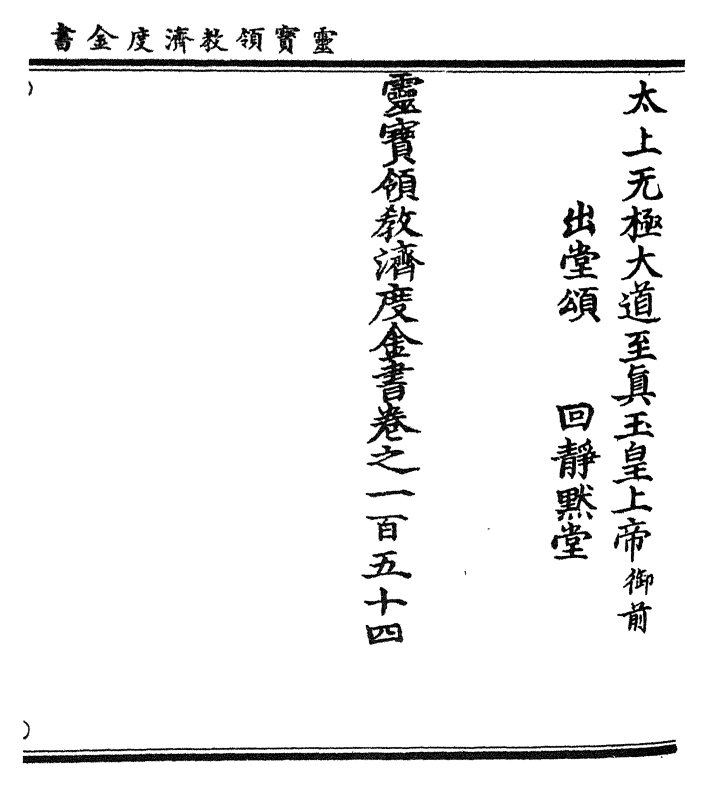 靈寶領教濟度金書
太上无極大道至眞玉皇上帝御前
出堂頌　回靜黙堂
靈寶領教濟度金書卷之一百五十四